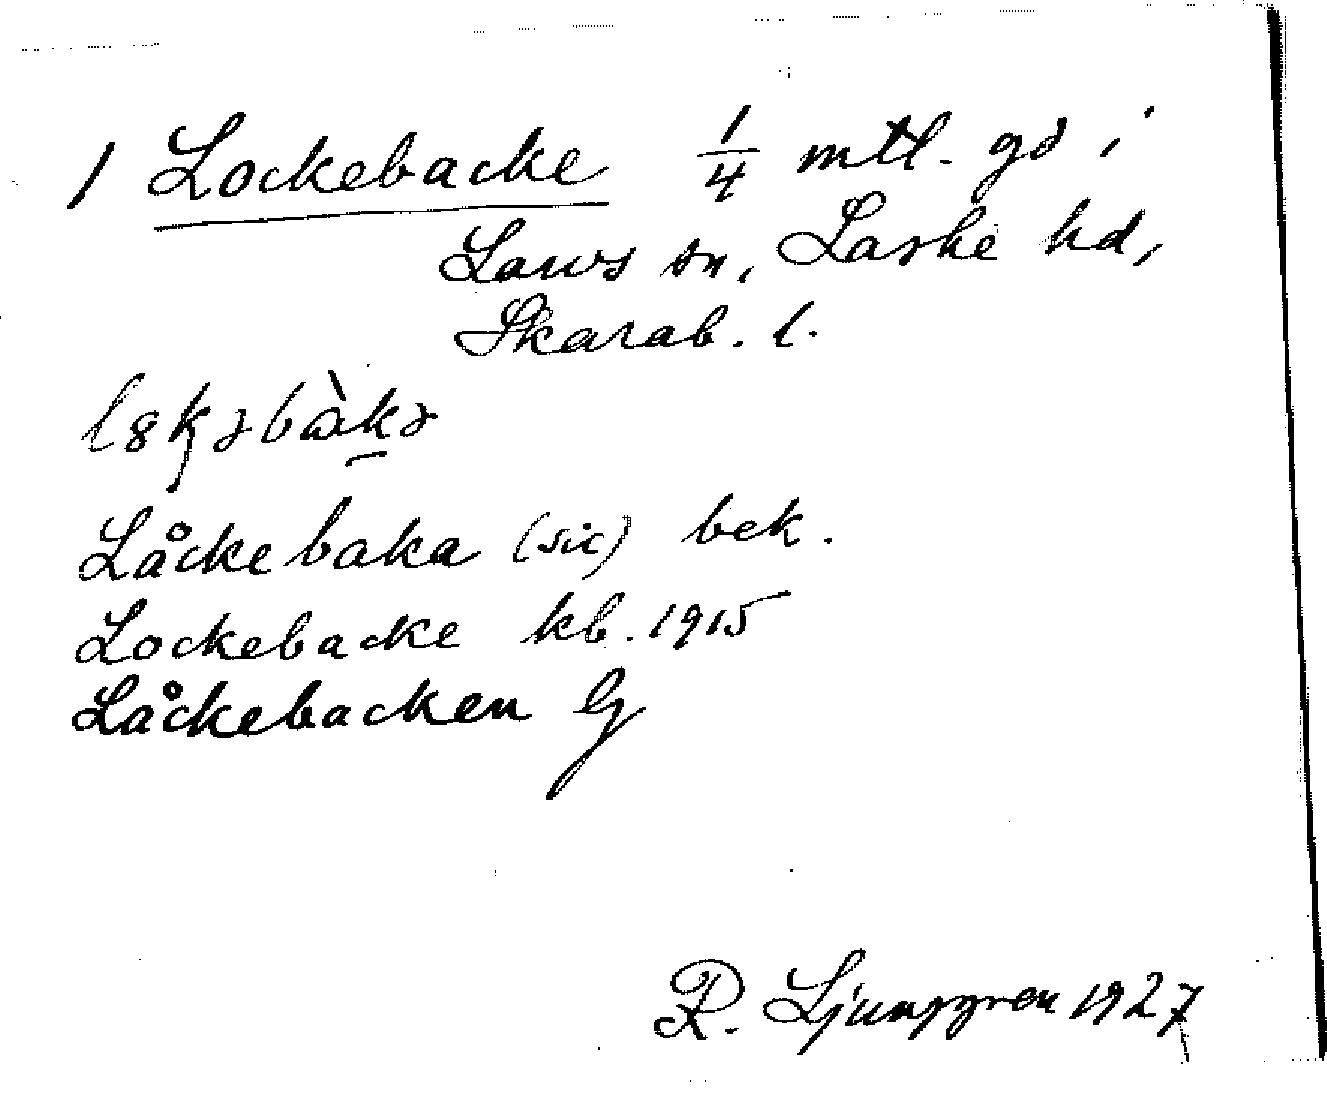 1 Lockebacke 1/4 mtl. gd i
Larvs sn, Laske hd,
Skarab. l.
Låckebaka (sic) bek.
Lockebacke kb. 1915
Låckebacken G
R. Ljunggren 1927